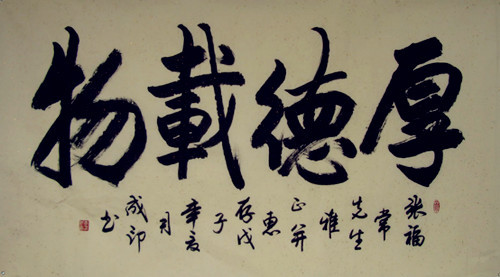 厚德載物
張福
常
先生
雅
正并
惠
存戊
子
月
成印
书